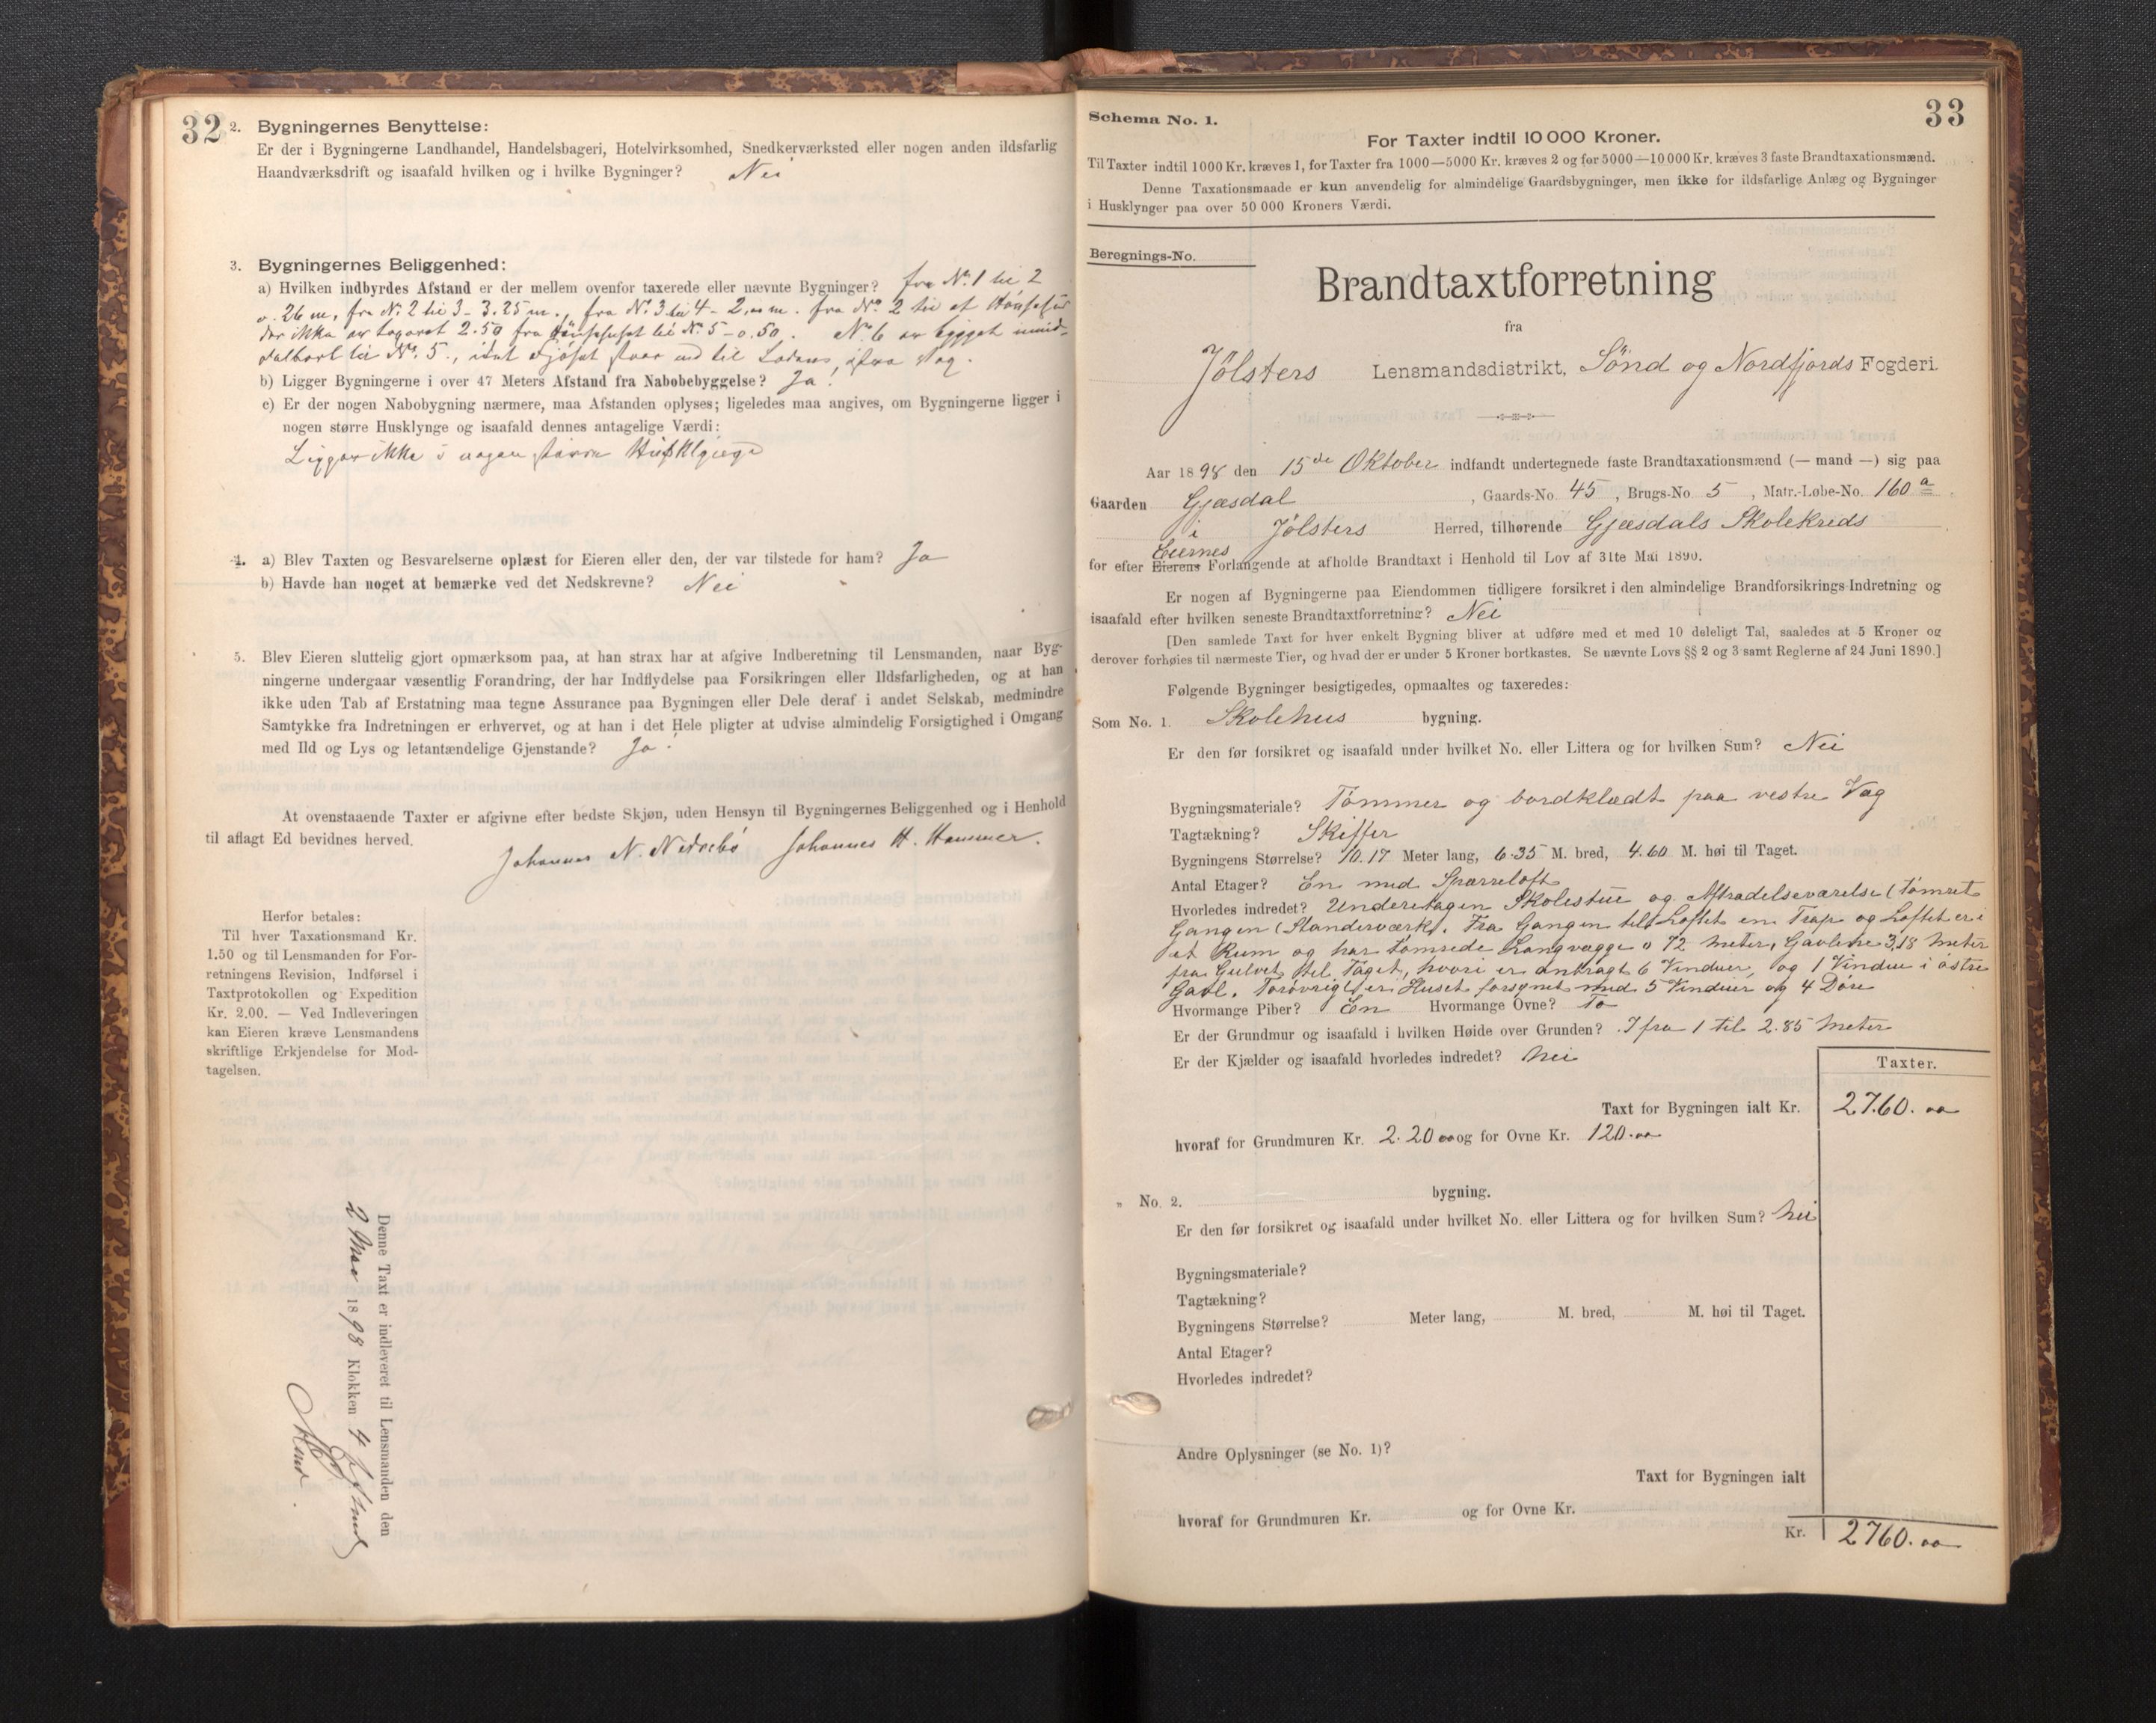 32
2. Bygningernes Benyttelse:
Er der i Bygningerne Landhandel, Handelsbageri, Hotelvirksomhed, Snedkerværksted eller nogen anden ildsfarlig
Haandværksdrift og isaafald hvilken og i hvilke Bygninger? Nei
3. Bygningernes Beliggenhed:
a) Hvilken indbyrdes Afstand er der mellem ovenfor taxerede eller nævnte Bygninger? fra No. 1 til 2
26 m, fra No. 2 til 3 - 3.25 m., fra No. 3 til 4 - 2,00 m. fra No. 2 til et
der ikke er 2.50 fra til No. 5 - 0.50. No. 6 er bygget umid-
delbart til No. 5.,
b) Ligger Bygningerne i over 47 Meters Afstand fra Nabobebyggelse? Ja.
c) Er der nogen Nabobygning nærmere, maa Afstanden oplyses; ligeledes maa angives, om Bygningerne ligger i
nogen større Husklynge og isaafald dennes antagelige Værdi:
Ligger ikke i nogen større Husklynge
4. a) Blev Taxten og Besvarelserne oplæst for Eieren eller den, der var tilstede for ham? Ja
b) Havde han noget at bemærke ved det Nedskrevne? Nei
5. Blev Eieren sluttelig gjort opmærksom paa, at han strax har at afgive Indberetning til Lensmanden, naar Byg-
ningerne undergaar væsentlig Forandring, der har Indflydelse paa Forsikringen eller Ildsfarligheden, og at han
ikke uden Tab af Erstatning maa tegne Assurance paa Bygningen eller Dele deraf i andet Selskab, medmindre
Samtykke fra Indretningen er erhvervet, og at han i det Hele pligter at udvise almindelig Forsigtighed i Omgang
med Ild og Lys og letantændelige Gjenstande? Ja.
At ovenstaaende Taxter er afgivne efter bedste Skjøn, uden Hensyn til Bygningernes Beliggenhed og i Henhold
til aflagt Ed bevidnes herved.
Johannes N. Nedrebø Johannes H. Hammer.
Herfor betales:
Til hver Taxationsmand Kr.
1.50 og til Lensmanden for For-
retningens Revision, Indførsel i
Taxtprotokollen og Expedition
Kr. 2.00. — Ved Indleveringen
kan Eieren kræve Lensmandens
skriftlige Erkjendelse for Mod-
tagelsen.
Denne Taxt er indleveret til Lensmanden den
2 Mai 1898 Klokken 4
33
Schema No. 1.
For Taxter indtil 10 000 Kroner.
Til Taxter indtil 1000 Kr. kræves 1, for Taxter fra 1000—5000 Kr. kræves 2 og for 5000—10 000 Kr. kræves 3 faste Brandtaxationsmænd.
Denne Taxationsmaade er kun anvendelig for almindelige Gaardsbygninger, men ikke for ildsfarlige Anlæg og Bygninger
i Husklynger paa over 50 000 Kroners Værdi.
Beregnings-No.
Brandtaxtforretning
fra
Jølsters Lensmandsdistrikt, Sønd og Nordfjords Fogderi.
Aar 1898 den 15de Oktober indfandt undertegnede faste Brandtaxationsmænd (— mand —) sig paa
Gaarden Gjæsdal, Gaards-No. 45, Brugs-No. 5, Matr.-Løbe-No. 160 a
i Jølsters Herred, tilhørende Gjæsdals Skolekreds
Eiernes
for efter Eierens Forlangende at afholde Brandtaxt i Henhold til Lov af 31te Mai 1890.
Er nogen af Bygningerne paa Eiendommen tidligere forsikret i den almindelige Brandforsikrings-Indretning og
isaafald efter hvilken seneste Brandtaxtforretning? Nei
[Den samlede Taxt for hver enkelt Bygning bliver at udføre med et med 10 deleligt Tal, saaledes at 5 Kroner og
derover forhøies til nærmeste Tier, og hvad der er under 5 Kroner bortkastes. Se nævnte Lovs §§ 2 og 3 samt Reglerne af 24 Juni 1890.]
Følgende Bygninger besigtigedes, opmaaltes og taxeredes:
Som No. 1. Skolehus bygning.
Er den før forsikret og isaafald under hvilket No. eller Littera og for hvilken Sum? Nei
Bygningsmateriale? Tømmer og bordklædt paa vestre Væg
Tagtækning? Skiffer
Bygningens Størrelse? 10.17 Meter lang, 6.35 M. bred, 4.60 M. høi til Taget.
Antal Etager? En med Sparreloft
Hvorledes indredet? Underetagen Skolestue og Aftrædelseværelse (tømret
Gangen (Standerværk). Fra Gangen til Loftet en Trap og Loftet er i
et Rum og har tømrede Langvægge 0.72 Meter, Gavlene 3,18 Meter
fra Gulvet til Taget, hvori er anbragt 6 Vinduer, og 1 Vindue i østre
Gavl. Forøvrigt er Huset forsynet med 5 Vinduer og 4 Døre
Hvormange Piber? En Hvormange Ovne? To
Er der Grundmur og isaafald i hvilken Høide over Grunden? Ifra 1 til 2.85 Meter
Er der Kjælder og isaafald hvorledes indredet? Nei
Taxter.
Taxt for Bygningen ialt Kr. 2760.00
hvoraf for Grundmuren Kr. 220 00 og for Ovne Kr. 120.00
„ No. 2. bygning.
Er den før forsikret og isaafald under hvilket No. eller Littera og for hvilken Sum? Nei
Bygningsmateriale?
Tagtækning?
Bygningens Størrelse? Meter lang, M. bred, M. høi til Taget.
Antal Etager?
Hvorledes indredet?
Andre Oplysninger (se No. 1)?
Taxt for Bygningen ialt
hvoraf for Grundmuren Kr. og for Ovne Kr.
Kr. 2760.00